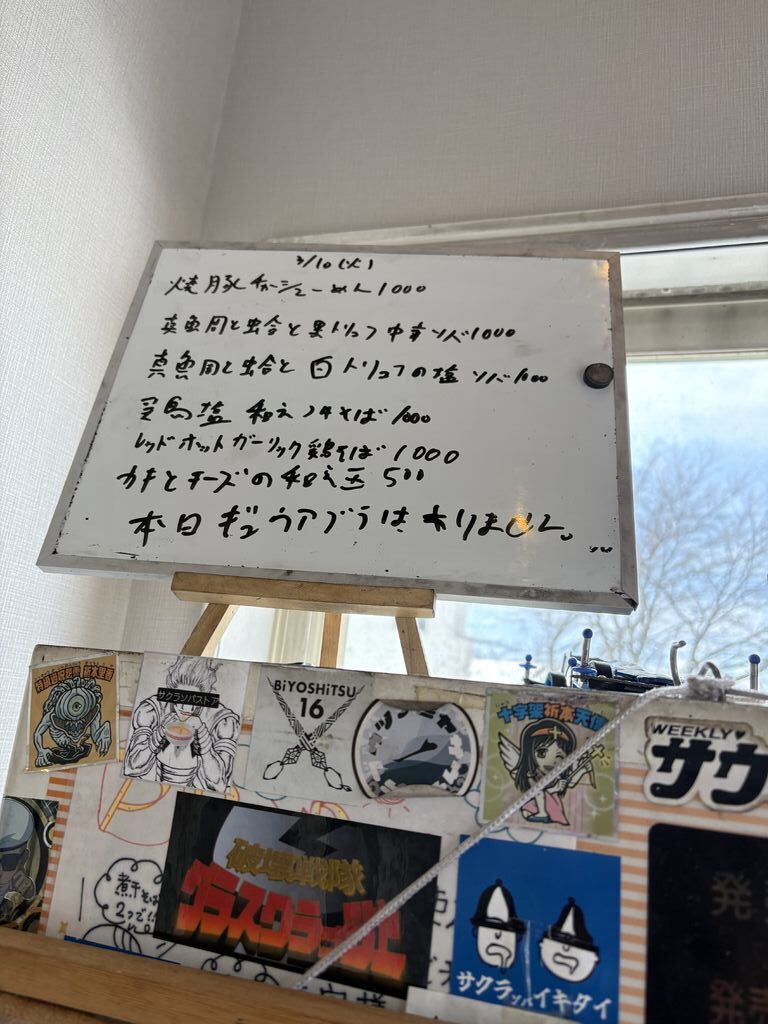 3/10(火)
焼豚チャーシューめん1000
真魚周と蛤と黒トリュフ中華ソバ1000
真魚周と蛤と白トリュフの塩ソバ1000
塩 和えソバ 1000
レッドホットガーリック鶏そば 1000
カキとチーズの和え玉 500
本日ギュウアブラはありません。
サクラソバストア
BiYOSHiTSU
16
十字架祈本天使
WEEKLY
サウ
破壊戦隊
グラスクラッ
煮干そば
2つで
サクラソバイキタイ
発
発